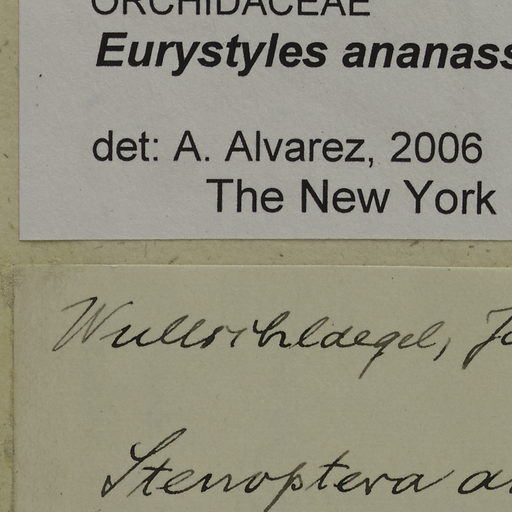 ORCHIDACEAE
Eurystyles ananass
det: A. Alvarez, 2006
The New York
Wullschlaegel, Ja
Stenoptera a